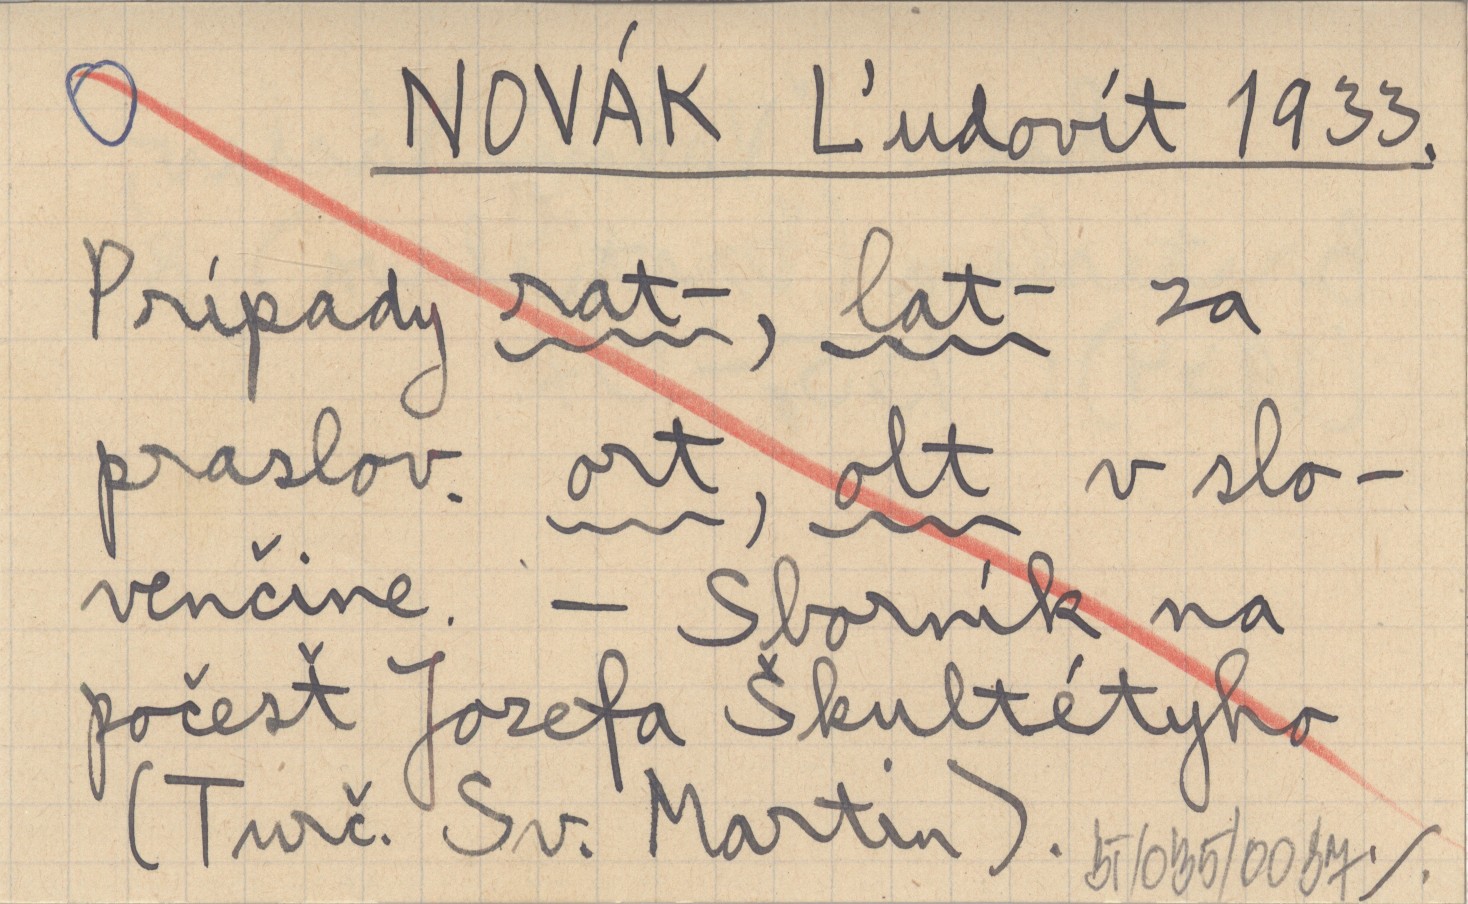 NOVÁK Ľudovít 1933.
Prípady rat-, lat- za
praslov. ort, olt v slo-
venčine. — Sborník na
počesť Jozefa Škultétyho
(Turč. Sv. Martin). ./.